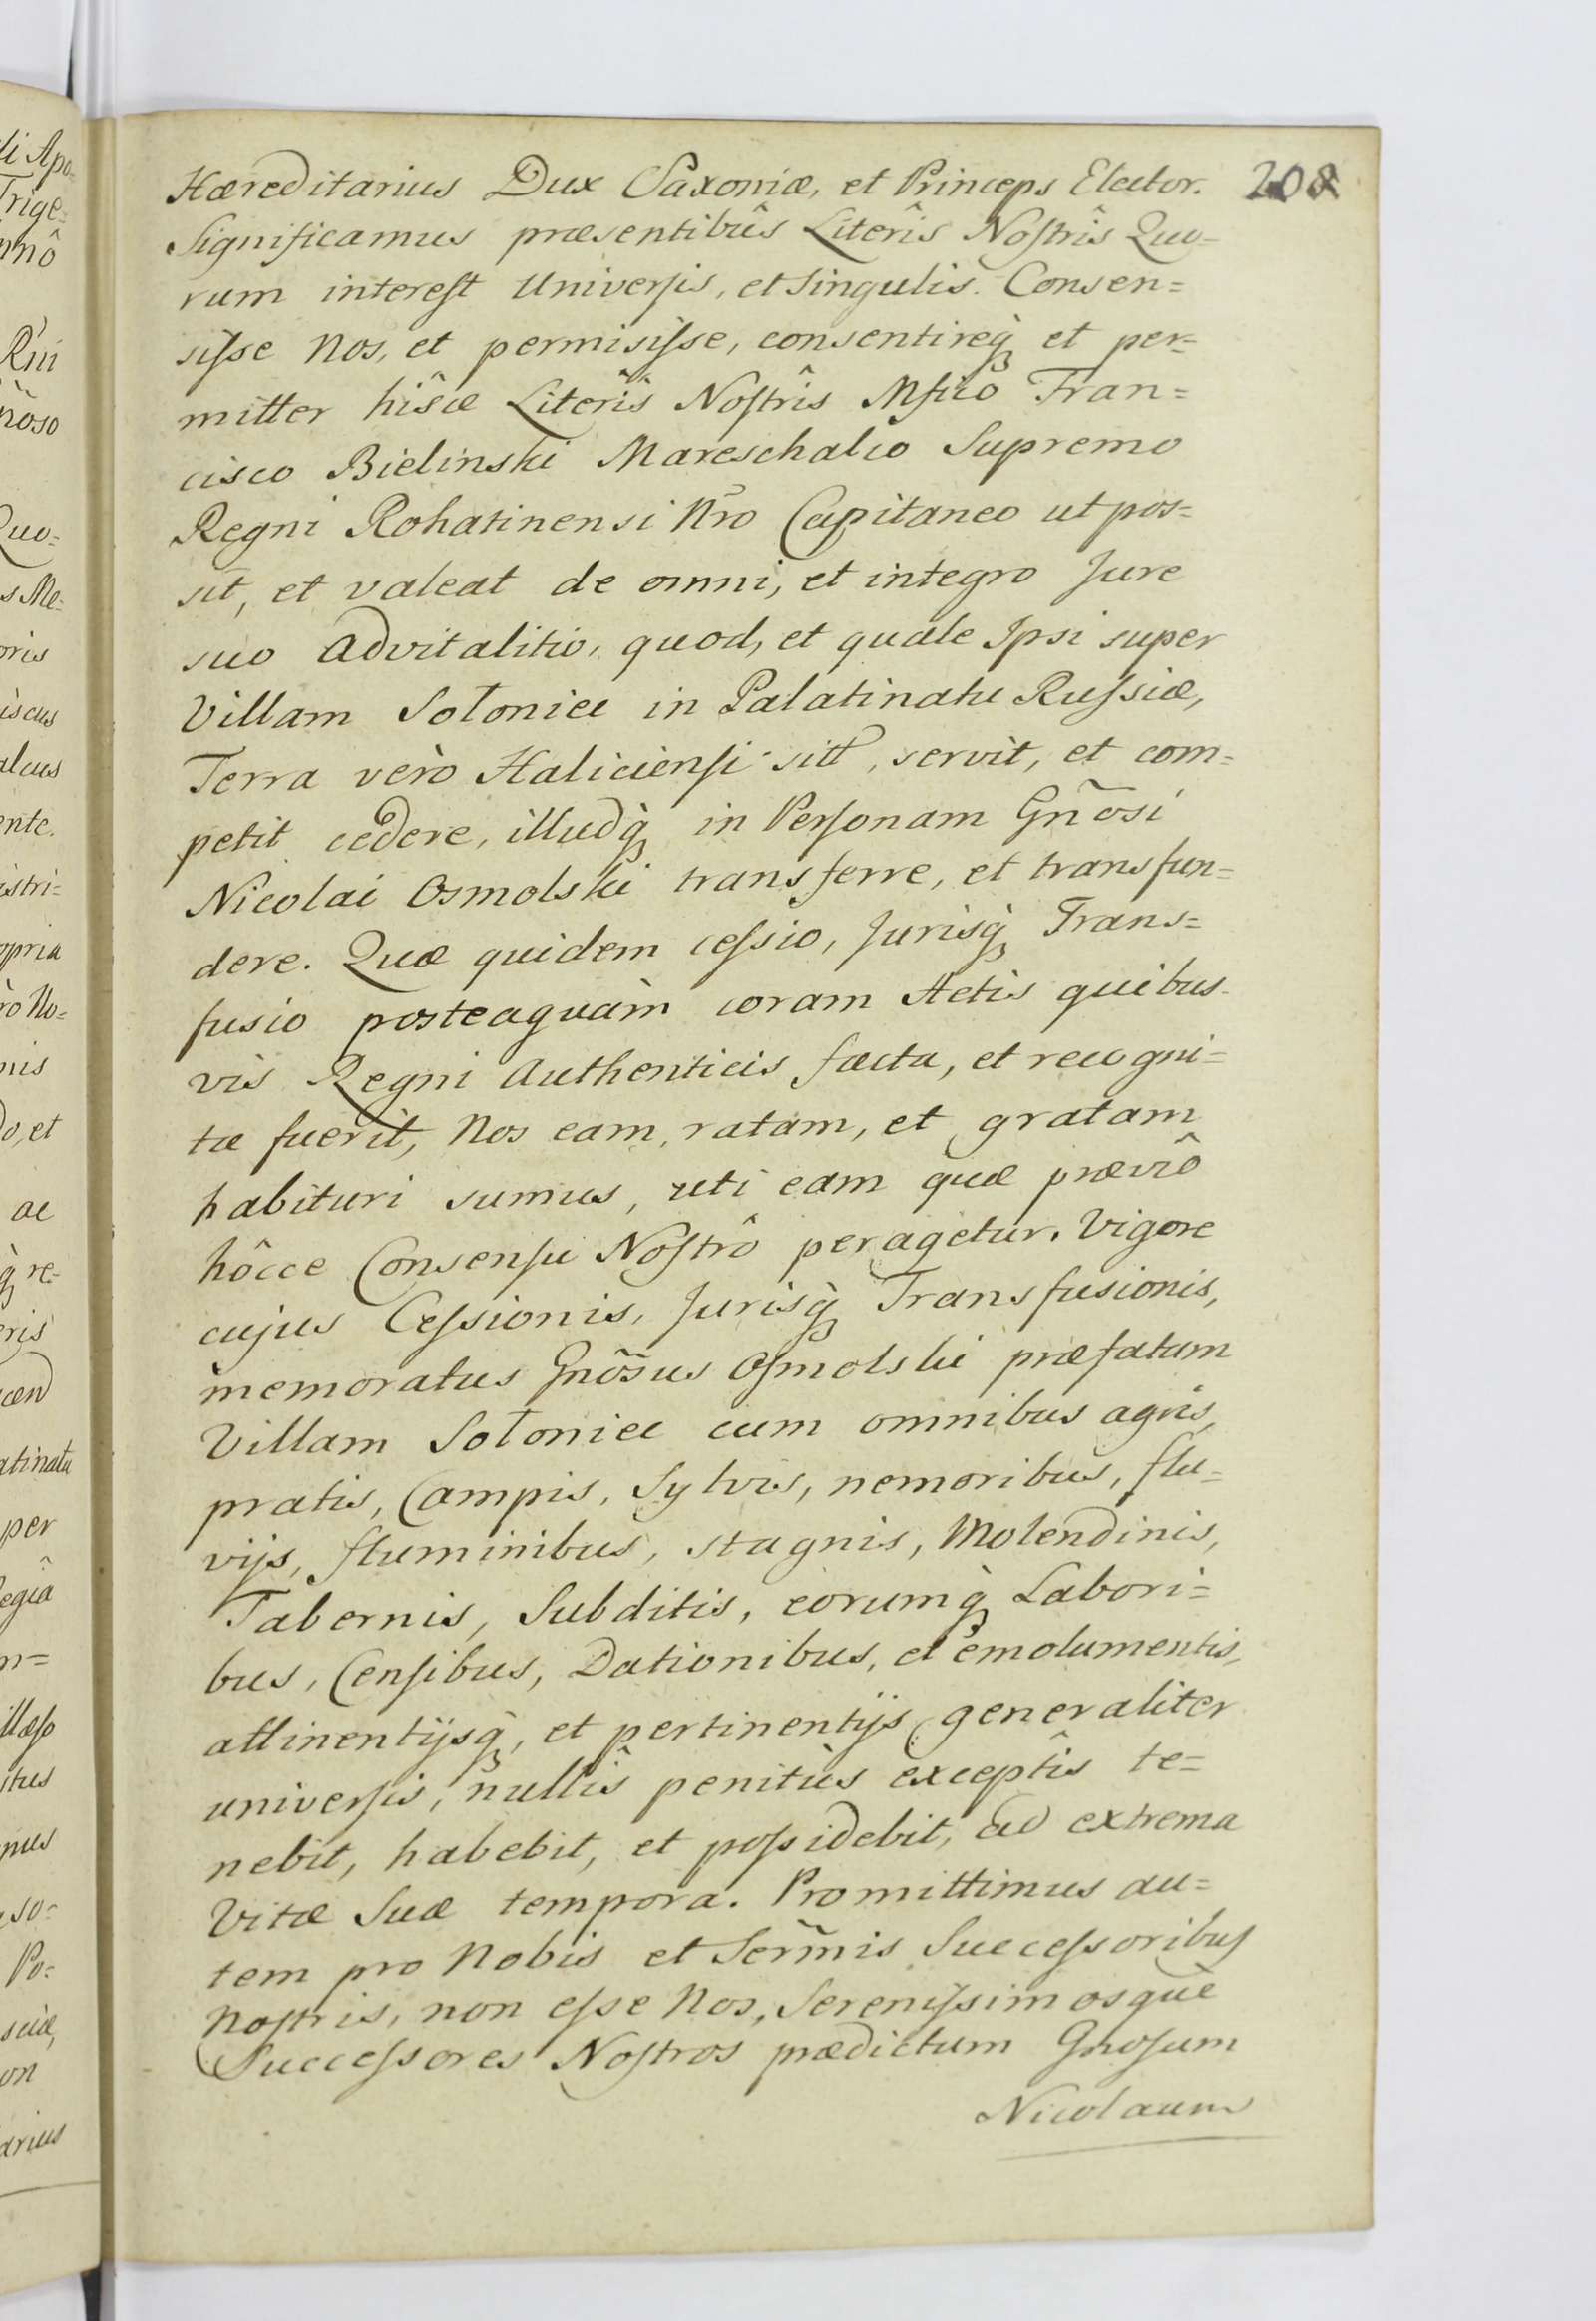 Hæreditarius Dux Saxoniæ, et Princeps Elector. 208
Significamus præsentibûs Literîs Nostrîs Quo=
rum interest Universis, et Singulis. Consen=
sisse Nos, et permisisse, consentireq̀ et per=
mitter hîsce Literîs Nostrîs Mfico Fran=
cisco Bielinski Mareschalco Supremo
Regni Rohatinensi Nro Capitaneo ut pos=
sit, et valeat de omni, et integro Jure
suo advitalitio, quod, et quale Ipsi super
Villam Sołoniec in Palatinatu Russiæ,
Terra verò Haliciensi sitt, servit, et com=
petit cedere, illudq̀ in Personam Gñosi
Nicolai Osmolski transferre, et transfun=
dere. Quæ quidem cessio, Jurisq̀ Trans=
fusio posteaquàm coram Actis quibus
vis Regni Authenticis facta, et recogni=
ta fuerit, Nos eam, ratam, et gratam
habituri sumus, uti eam quæ præviô
hôcce Consensu Nostrô peragetur. Vigore
cujus Cessionis, Jurisq̀ Transfusionis,
memoratus Gnõsus Osmolski præfatam
Villam Sołoniec cum omnibus agris,
pratis, Campis, Sylvis, nemoribus, flu=
vijs, fluminibus, stagnis, Molendinis,
Tabernis, Subditis, eorumq̀ Labori=
bus, Censibus, Dationibus, et emolumentis,
attinentijsq̀, et pertinentijs generaliter
universis, nullîs penitùs exceptîs te=
nebit, habebit, et possidebit, ad extrema
Vitæ Suæ tempora. Promittimus au=
tem pro Nobis et Serm̃is Successoribus
Nostris, non esse Nos, Serenissimosquè
Successores Nostros prædictum Gnosum
Nicolaum